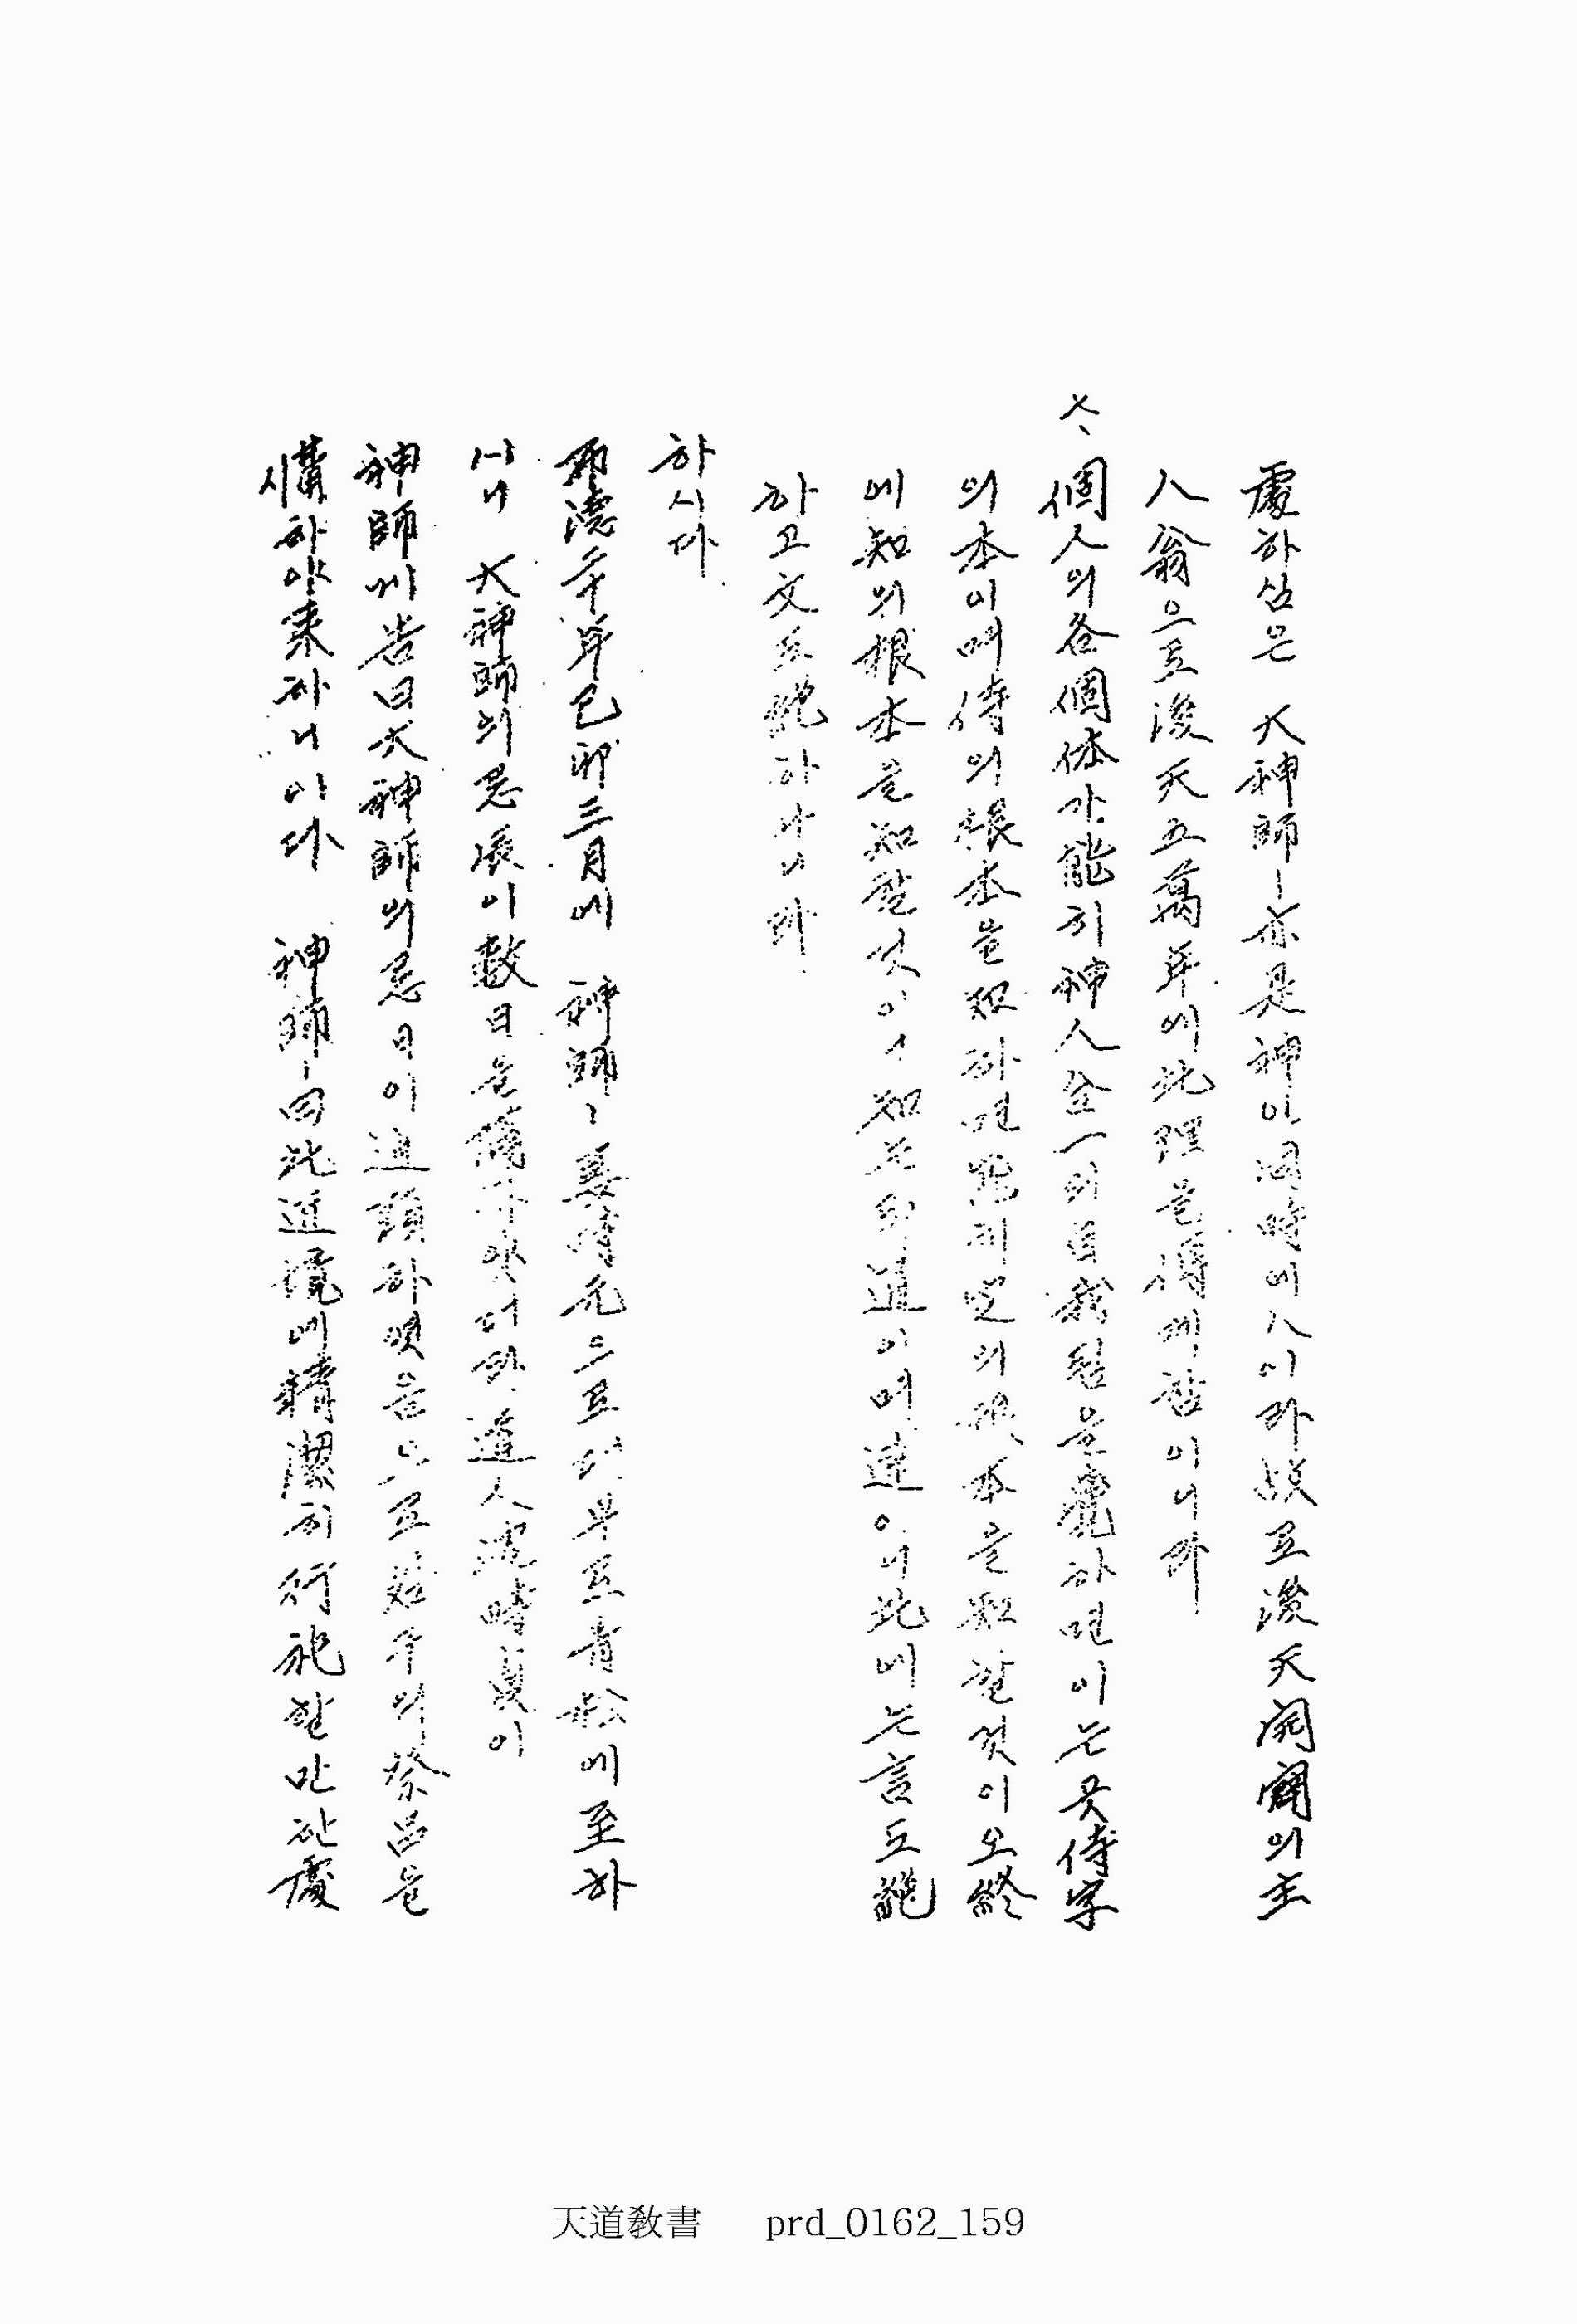 處하심은 大神師ㅣ亦是神이同時에人이라故로後天開闢의主
人翁으로後天五萬年에此理를傳케함이니라
個人의各個体가能히神人合一의自我됨을覺하면이는곳侍字
의本이며侍의根本을知하면能히定의根本을知할것이오終
에知의根本을知할것이니知는卽道이며達이니此에는言도說
하고文도說하나니라
하시다
布德二十年己卯三月에 神師ㅣ姜時元으로더부로靑松에至하
시니 大神師의忌辰이數日을隔하얏더라道人沈時貞이
神師께告曰大神師의忌日이迫頭하엿음으로茲우의祭品을
備하야來하니이다 神師ㅣ曰此近境에精潔히行祀할만한處
天道敎書 prd_0162_159